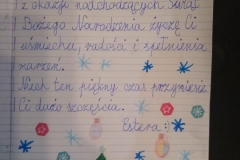 z okazji nadchodzących Świąt
Bożego Narodzenia życzę Ci
uśmiechu, radości i spełnienia
marzeń.
Niech ten piękny czas przyniesie
Ci dużo szczęścia.
Estera :)